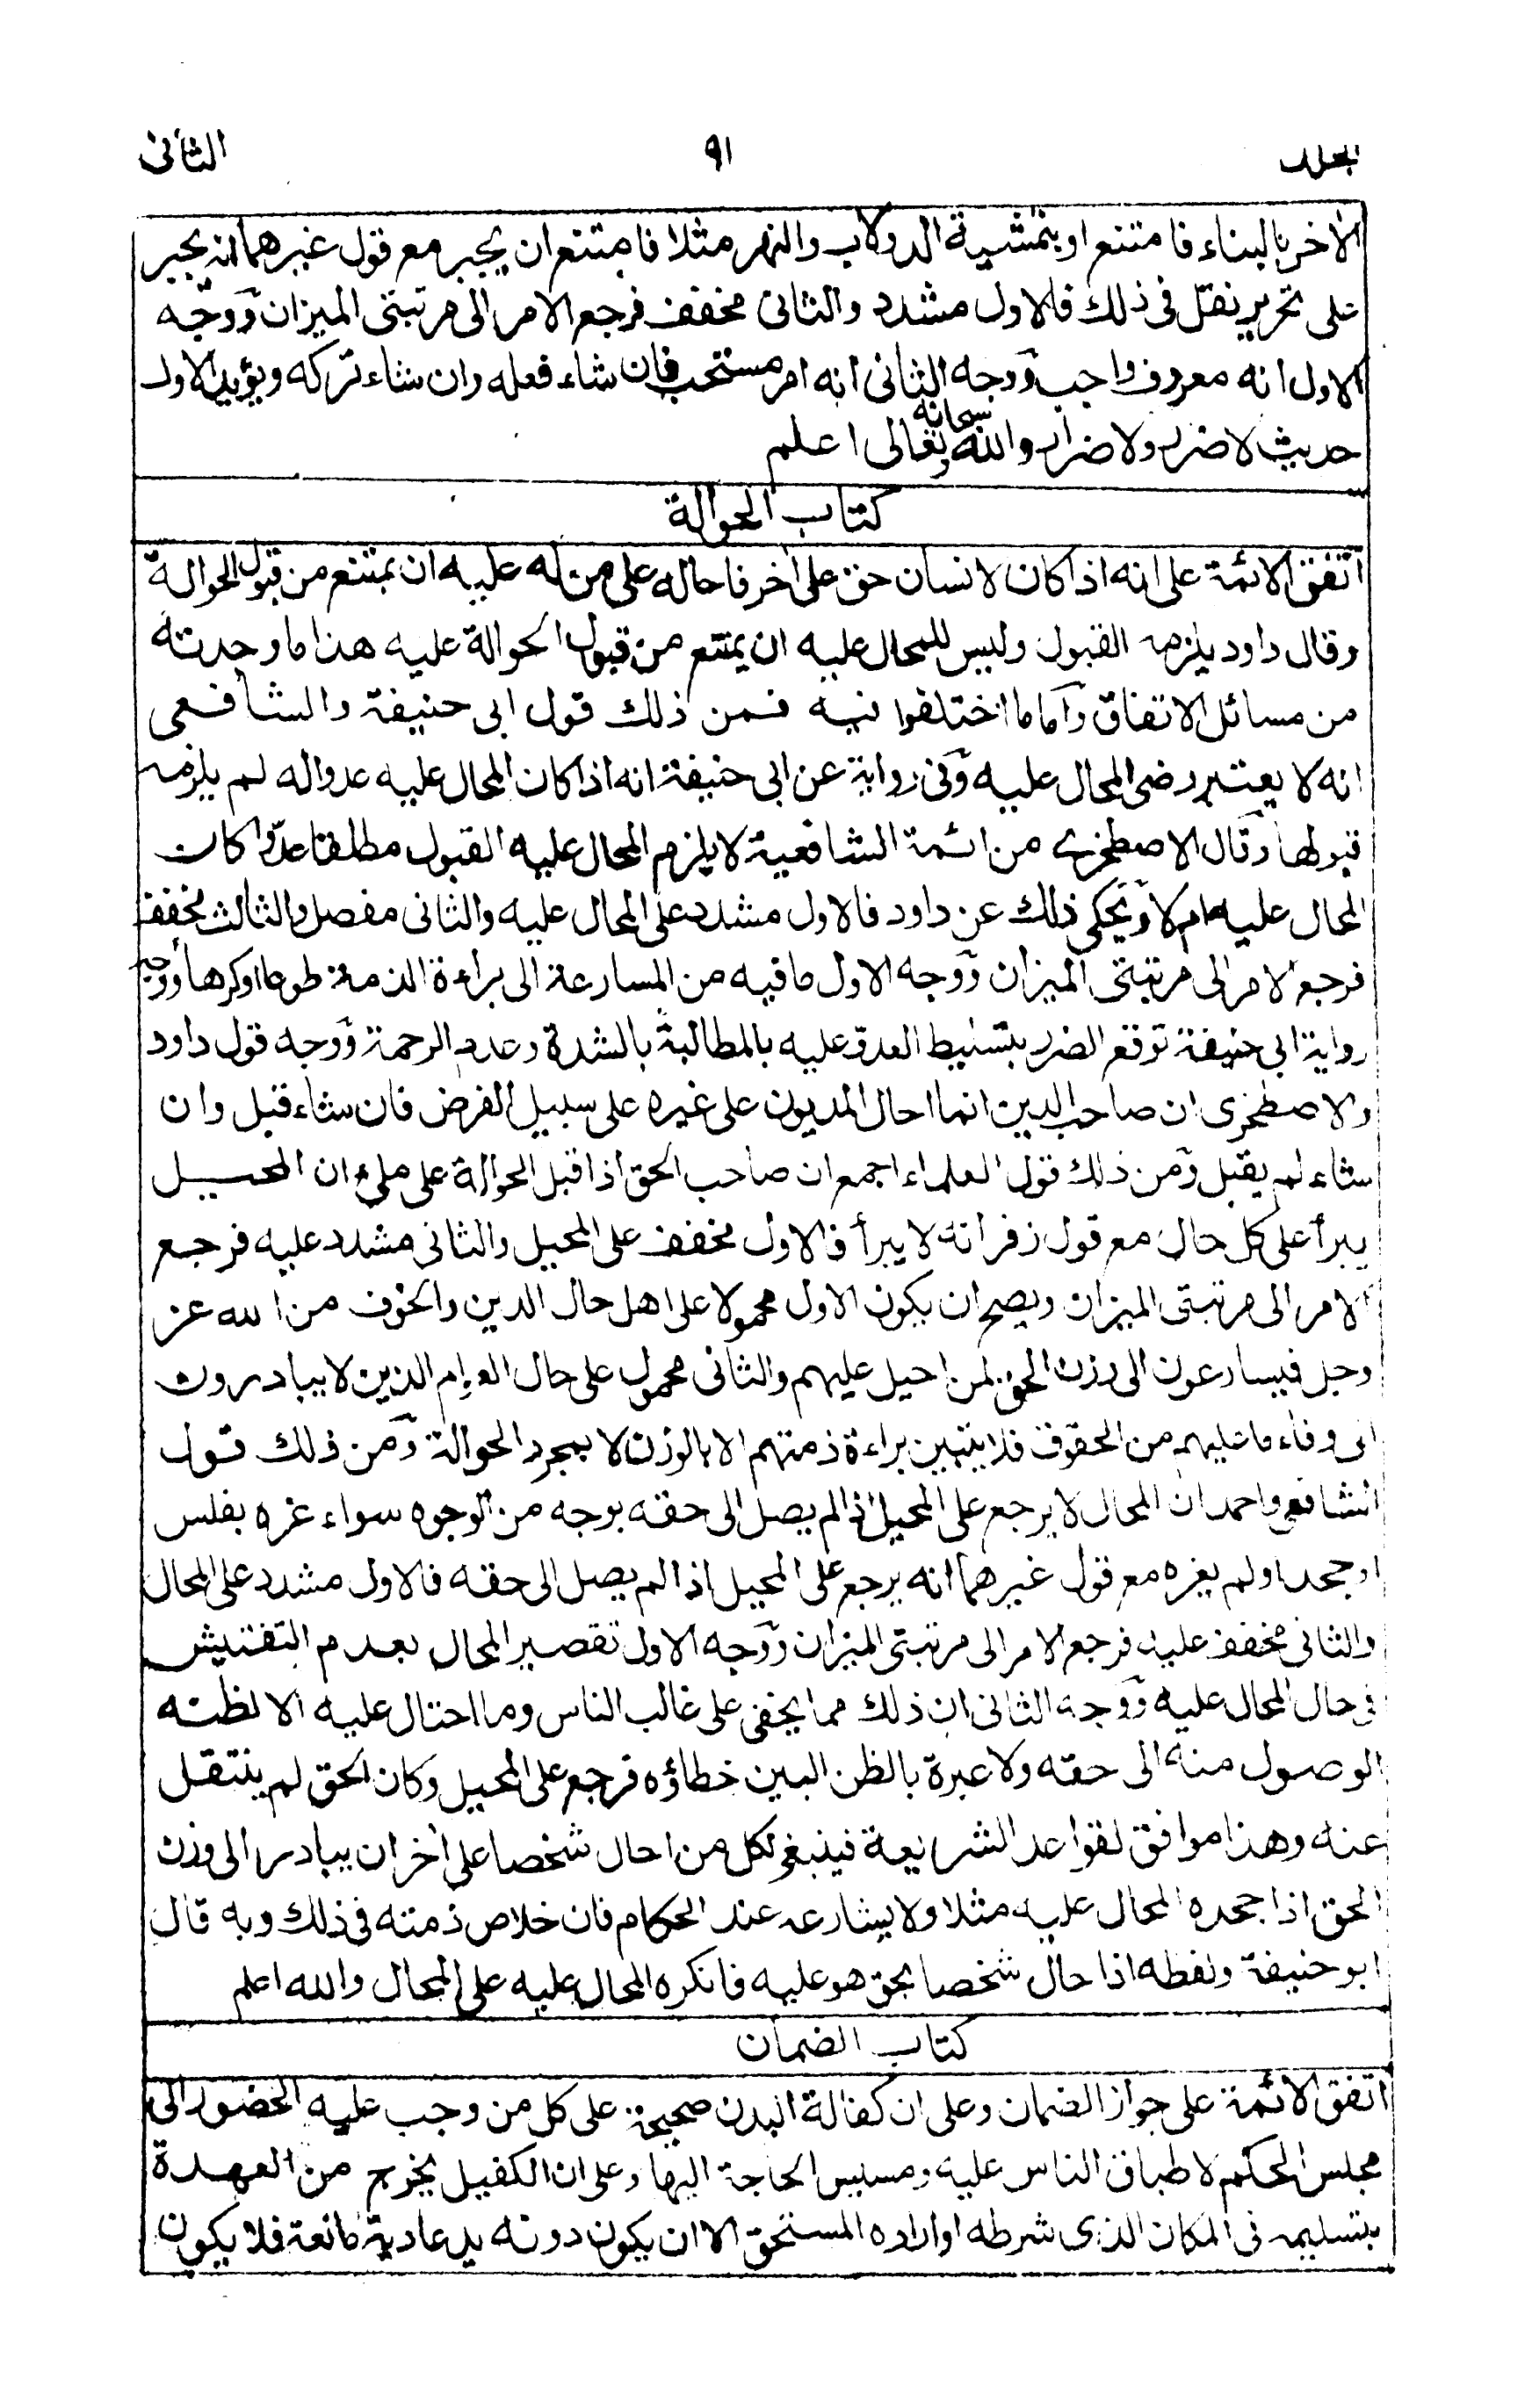 الجلد ٩١ الثانى
الاخر بالبناء فامتنع او بتمشية الدولاب والنهر مثلا فامتنع ان يجبر مع قول غيرهما انه يجبر
على تحرير نقل فى ذلك فالاول مشدد والثانى مخفف فرجع الامر الى مرتبتى الميزان ووجه
الاول انه معروف واجب ووجه الثانى انه امر مستحب فان شاء فعله وان شاء تركه ويؤيد الاول
حديث لا ضرر ولا ضرار والله سبحانه وتعالى اعلم
كتاب الحوالة
اتفق الائمة على انه اذا كان لانسان حق على اخر فاحاله على من له عليه ان يمتنع من قبول الحوالة
وقال داود يلزمه القبول وليس للمحال عليه ان يمتنع من قبول الحوالة عليه هذا ما وجدته
من مسائل الاتفاق واما ما اختلفوا فيه فمن ذلك قول ابى حنيفة والشافعى
انه لا يعتبر رضى المحال عليه وفى رواية عن ابى حنيفة انه اذا كان المحال عليه عدوا له لم يلزمه
قبولها وقال الاصطخرى من ائمة الشافعية لا يلزم المحال عليه القبول مطلقا عدوا كان
المحال عليه ام لا ويحكى ذلك عن داود فالاول مشدد على المحال عليه والثانى مفصل والثالث مخفف
فرجع الامر الى مرتبتى الميزان ووجه الاول ما فيه من المسارعة الى براءة الذمة طوعا او كرها ووجه
رواية ابى حنيفة توقع الضرر بتسليط العدو عليه بالمطالبة بالشدة وعدم الرحمة ووجه قول داود
والاصطخرى ان صاحب الدين انما احال المديون على غيره على سبيل الفرض فان شاء قبل وان
شاء لم يقبل ومن ذلك قول العلماء اجمع ان صاحب الحق اذا قبل الحوالة على ملىء ان المحيل
يبرأ على كل حال مع قول زفر انه لا يبرأ فالاول مخفف على المحيل والثانى مشدد عليه فرجع
الامر الى مرتبتى الميزان ويصح ان يكون الاول محمولا على اهل حال الدين والخوف من الله عز
وجل فيسارعون الى وزن الحق لمن احيل عليهم والثانى محمول على حال العوام الذين لا يبادرون
الى وفاء ما عليهم من الحقوق فلا يتبين براءة ذمتهم الا بالوزن لا بمجرد الحوالة ومن ذلك قول
الشافعى واحمد ان المحال لا يرجع على المحيل اذا لم يصل الى حقه بوجه من الوجوه سواء غره بفلس
او جحد او لم يغره مع قول غيرهما انه يرجع على المحيل اذا لم يصل الى حقه فالاول مشدد على المحال
والثانى مخفف عليه فرجع الامر الى مرتبتى الميزان ووجه الاول تقصير المحال بعدم التفتيش
فى حال المحال عليه ووجه الثانى ان ذلك مما يخفى على غالب الناس وما احتال عليه الا لظنه
الوصول منه الى حقه ولا عبرة بالظن البين خطاؤه فرجع على المحيل وكان الحق لم ينتقل
عنه وهذا موافق لقواعد الشريعة فينبغى لكل من احال شخصا على اخر ان يبادر الى وزن
الحق اذا جحده المحال عليه مثلا ولا يشارعه عند الحكام فان خلاص ذمته فى ذلك وبه قال
ابو حنيفة ولفظه اذا حال شخصا بحق هو عليه فانكره المحال عليه على المحال والله اعلم
كتاب الضمان
اتفق الائمة على جواز الضمان وعلى ان كفالة البدن صحيحة على كل من وجب عليه الحضور الى
مجلس الحكم لاطباق الناس عليه ومسيس الحاجة اليها وعلى ان الكفيل يخرج من العهدة
بتسليمه فى المكان الذى شرطه او اراده المستحق الا ان يكون دونه يد عادية مانعة فلا يكون